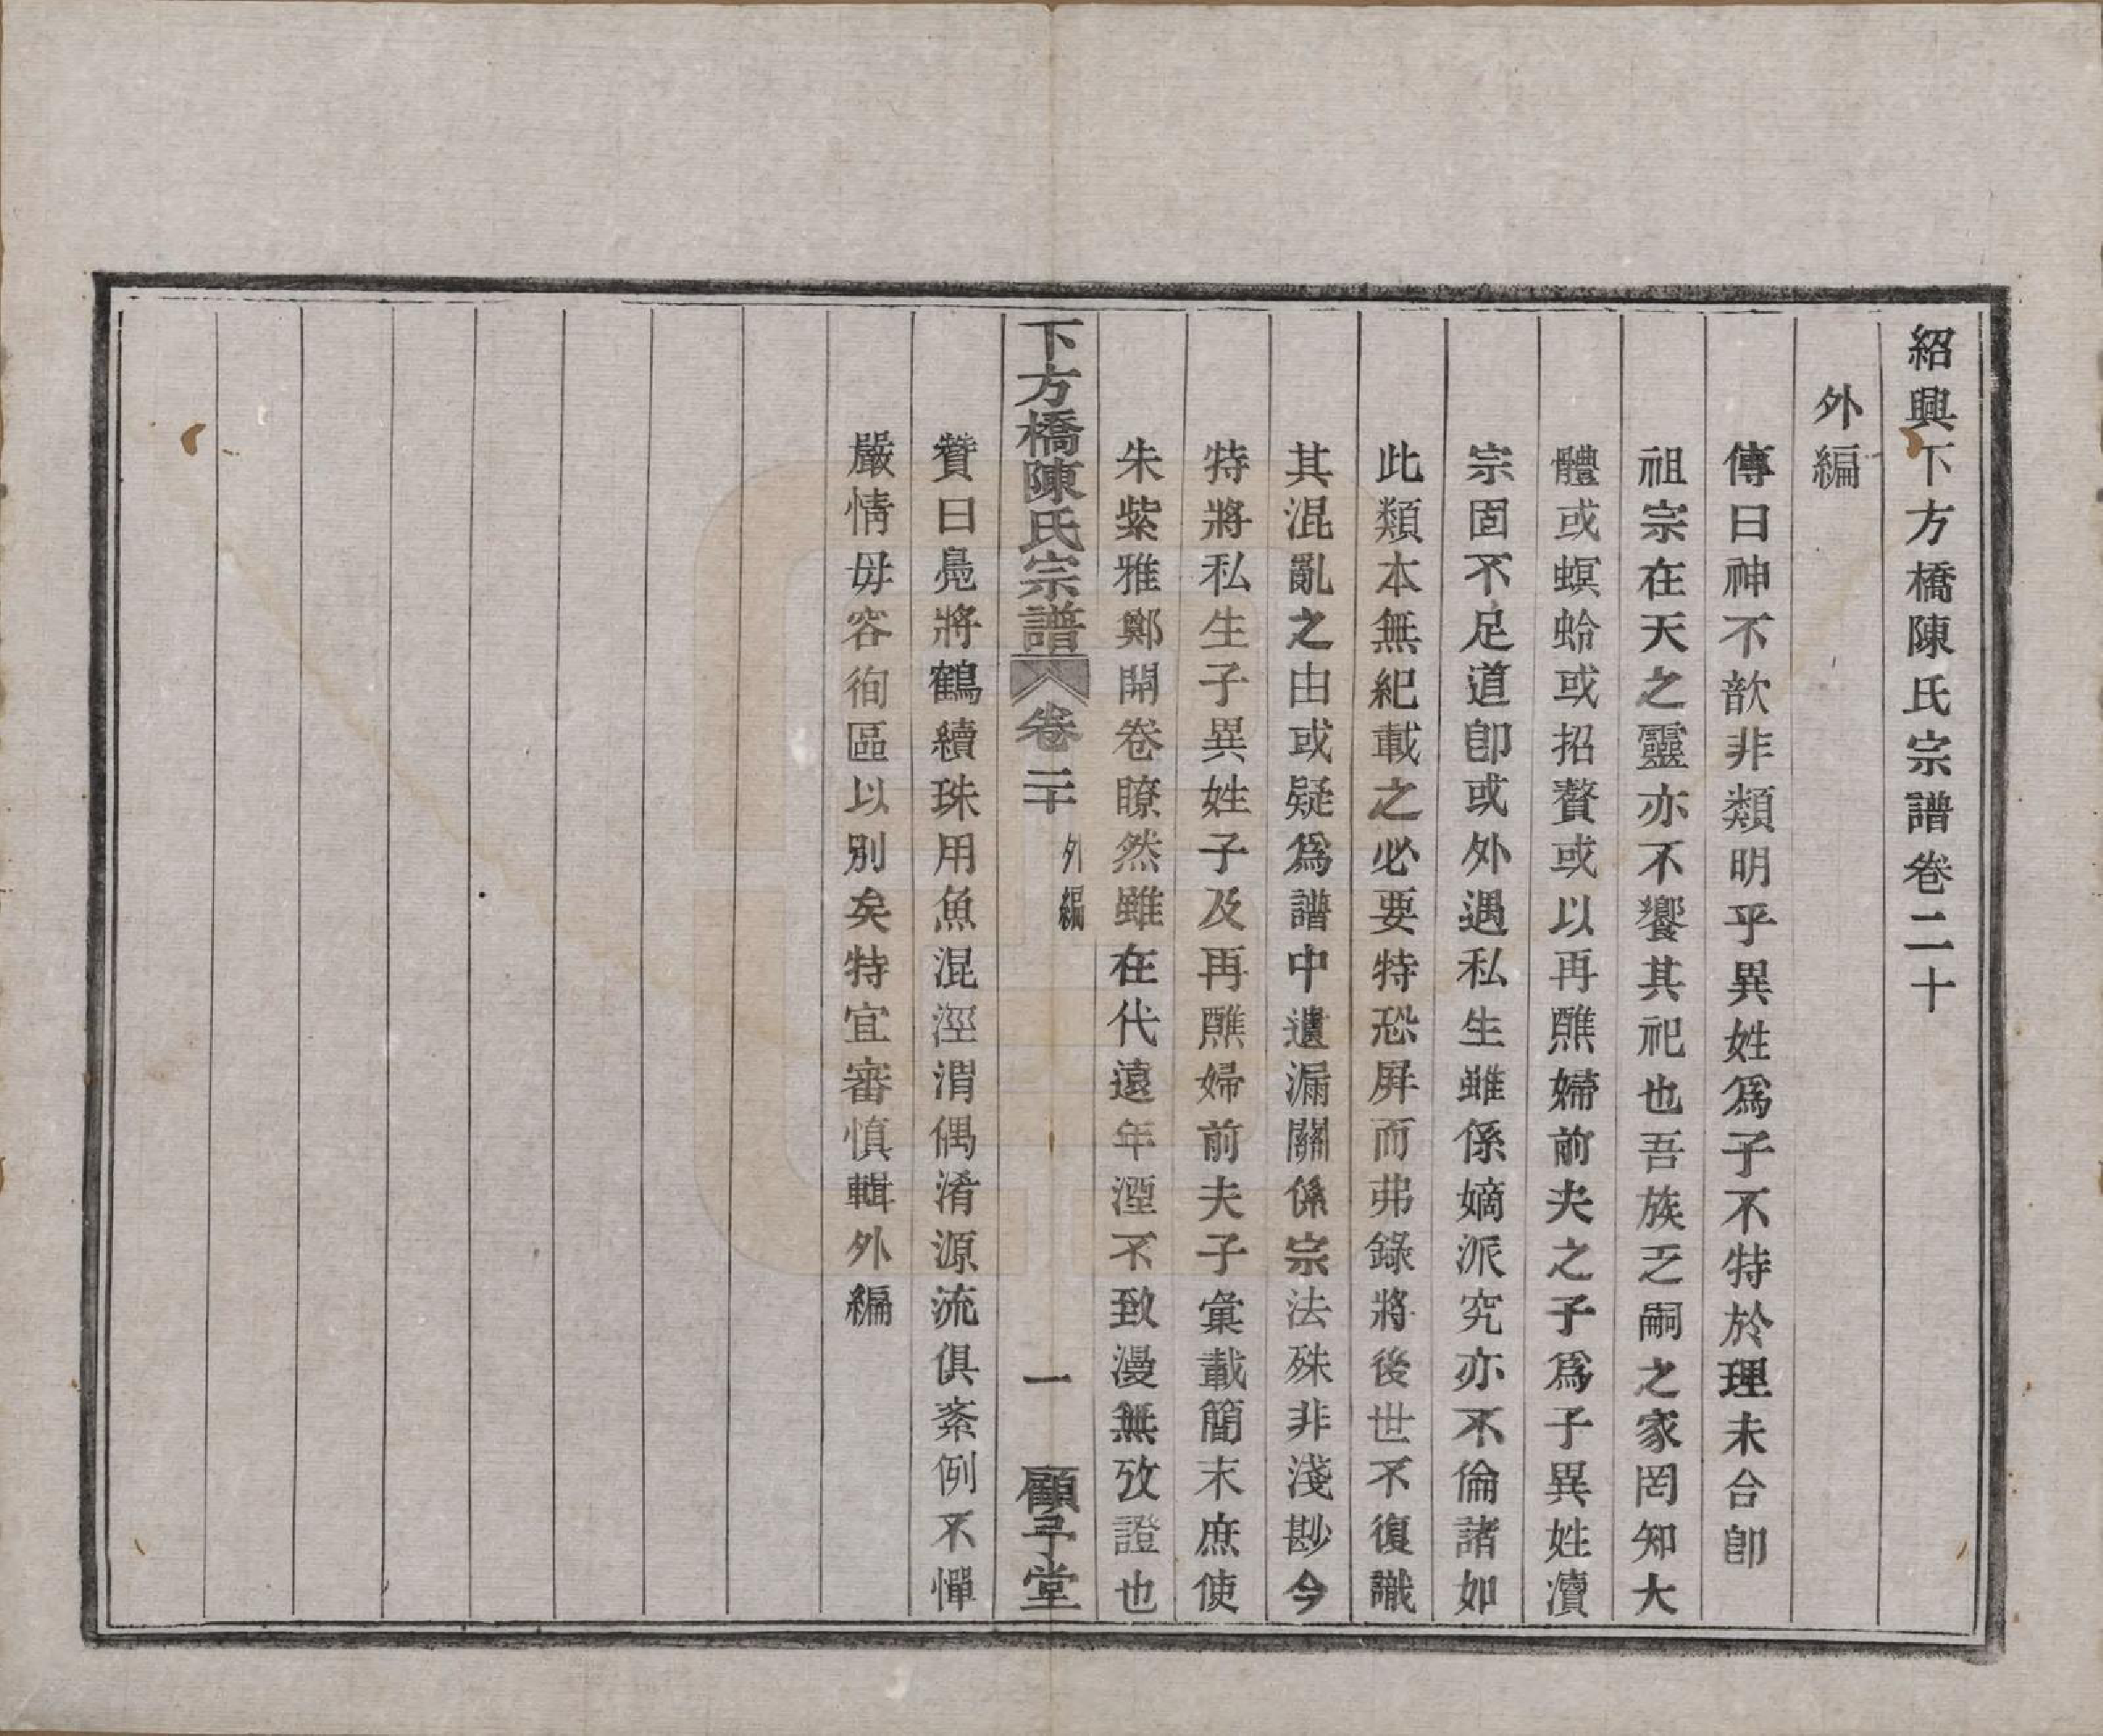 紹興下方橋陳氏宗譜卷二十
外編
傳曰神不歆非類明乎異姓爲子不特於理未合卽
祖宗在天之靈亦不饗其祀也吾族乏嗣之家罔知大
體或螟蛉或招贅或以再醮婦前夫之子爲子異姓瀆
宗固不足道卽或外遇私生雖係嫡派究亦不倫諸如
此類本無紀載之必要特恐屏而弗錄將後世不復識
其混亂之由或疑爲譜中遺漏關係宗法殊非淺尠今
特將私生子異姓子及再醮婦前夫子彙載簡末庶使
朱紫雅鄭開卷瞭然雖在代遠年湮不致漫無攷證也
下方橋陳氏宗譜 卷二十 外編 一 顧予堂
贊曰鳧將鶴續珠用魚混涇渭偶淆源流俱紊例不憚
嚴情毋容徇區以別矣特宜審慎輯外編